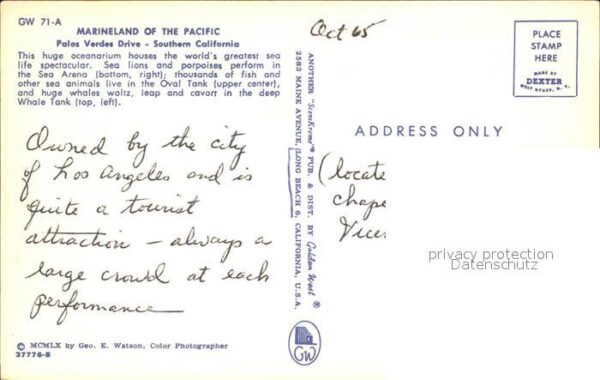 GW 71-A
MARINELAND OF THE PACIFIC
Palos Verdes Drive - Southern California
This huge oceanarium houses the world's greatest sea
life spectacular. Sea lions and porpoises perform in
the Sea Arena (bottom, right); thousands of fish and
other sea animals live in the Oval Tank (upper center),
and huge whales waltz, leap and cavort in the deep
Whale Tank (top, left).
Owned by the city
of Los Angeles and is
quite a tourist
attraction - always a
large crowd at each
performance
© MCMLX by Geo. E. Watson, Color Photographer
37776-B
ANOTHER "ScenKrome" PUB. & DIST. BY Golden West ®
2583 MAINE AVENUE, (LONG BEACH 6, CALIFORNIA, U.S.A.
GW
Oct 65
PLACE
STAMP
HERE
MADE BY
DEXTER
WEST NYACK, N. Y.
ADDRESS ONLY
(locate
chape
Vice
privacy protection
Datenschutz